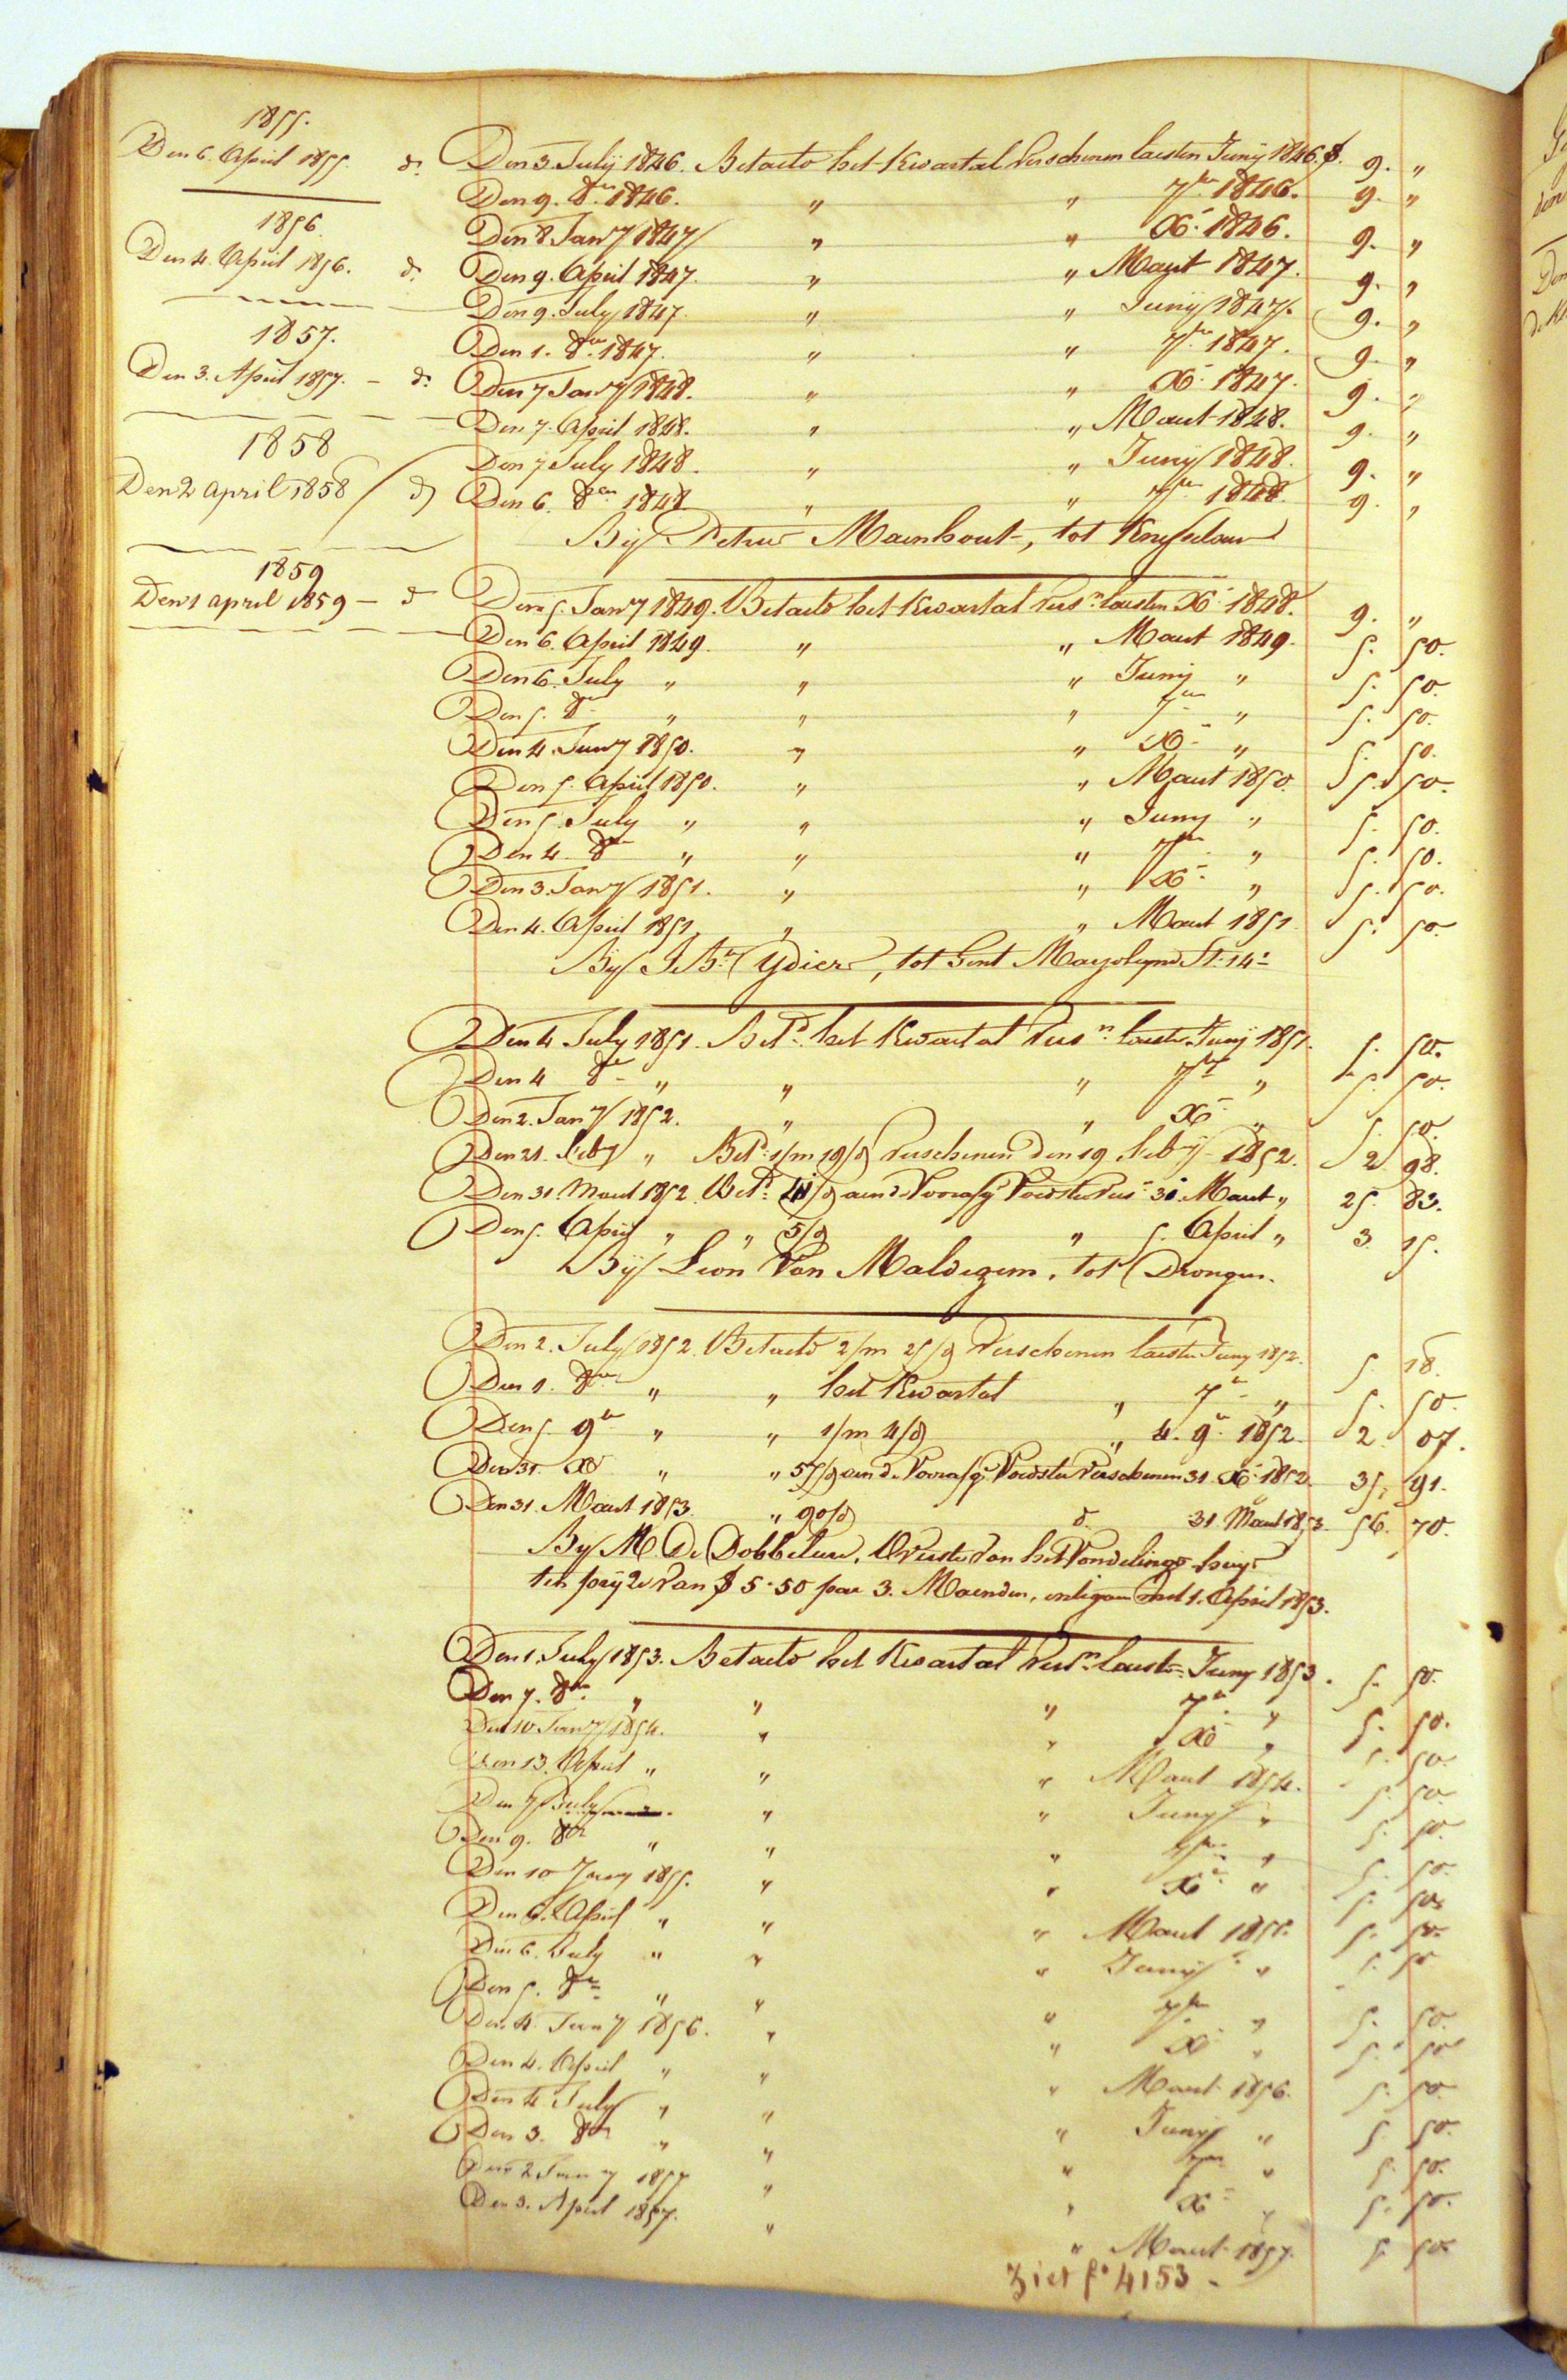 1855.
Den 6. April 1855. do
1856.
Den 4. April 1856. do
1857.
Den 3. April 1857. - do
1858
Den 2 april 1858 do
1859
Den 1 april 1859 - do
Den 3. July 1846. Betaelt het Kwartal verschenen laesten Juny 1846. f. 9. "
Den 9. 8er 1846. " " 7ber 1846. 9. "
Den 8 Janry 1847 " " Xr 1846. 9. "
Den 9. April 1847. " " Maert 1847. 9. "
Den 9. July 1847. " " Juny 1847. 9. "
Den 1. 8er 1847. " " 7ber 1847. 9. "
Den 7 Janry 1848. " " Xr 1847. 9. "
Den 7. April 1848. " " Maert 1848. 9. "
Den 7 July 1848. " " Juny 1848. 9. "
Den 6. 8er 1848 " " 7ber 1848. 9. "
By Petrus Maenhout, tot
Den 5. Janry 1849. Betaelt het Kwartal versn laesten Xr 1848. 9. "
Den 6. April 1849. " " Maert 1849. 5. 50.
Den 6. July " " " Juny " 5. 50.
Den 5. 8er " " " 7ber " 5. 50.
Den 4. Janry 1850. " " Xr " 5. 50.
Den 5. April 1850. " " Maert 1850. 5. 50.
Den 5. July " " " Juny " 5. 50.
Den 4. 8er " " " 7ber " 5. 50.
Den 3. Janry 1851. " " Xr " 5. 50.
Den 4. April 1851 " " Maert 1851. 5. 50.
By J. Bte Ydiers, tot Gent St. 14
Den 4 July 1851. Betd het Kwartal versn laesten Juny 1851. 5. 50.
Den 4 8er " " " 7ber " 5. 50.
Den 2. Janry 1852. " " Xr " 5. 50.
Den 21. Febry " Betd 1/m 19/d verschenen den 19 Febry 1852. 2 98.
Den 31. Maert 1852. Betd 41/d aen de Voorsz Voedster vers 31. Maert " 25. 83.
Den 5. April " " 5/d " 5. April " 3. 15.
By Leon Van Maldegem, tot Drongen.
Den 2. July 1852. Betaelt 2/m 25/d verschenen laesten Juny 1852. 5. 18.
Den 1. 8er " " het Kwartal " 7r " 5. 50.
Den 5. 9er " " 1/m 4/d " 4. 9r 1852. 2. 07.
Den 31. Xr " " 57/d aen de Voorsz Voedster verschenen 31. Xr 1852. 35. 91.
Den 31. Maert 1853. " 90/d do 31. Maert 1853. 56. 70.
By M. De Dobbelaere, Overste van het Vondelings-huys
ten pryze van f 5-50 par 3. Maenden, met 1. April 1853.
Den 1. July 1853. Betaelt het Kwartal versn laesten Juny 1853. 5. 50.
Den 7. 8er " " " 7r " 5. 50.
Den 10 Janry 1854. " " Xr " 5. 50.
Den 13. April " " " Maert 1854. 5. 50.
Den 7 July " " Juny " 5. 50.
Den 9. 8er " " " 7ber " 5. 50.
Den 10 Janry 1855. " " Xr " 5. 50.
Den 6. April " " " Maert 1855. 5. 50.
Den 6. July " " " Juny " 5. 50
Den 5. 8er " " " 7ber " 5. 50.
Den 4. Janry 1856. " " Xr " 5. 50
Den 4. April " " " Maert 1856. 5. 50.
Den 4. July " " " Juny " 5. 50.
Den 3. 8er " " " 7ber " 5. 50.
Den 2 Janry 1857 " " Xr " 5. 50.
Den 3. April 1857. " " Maert 1857. 5. 50.
Ziet fo 4153 -